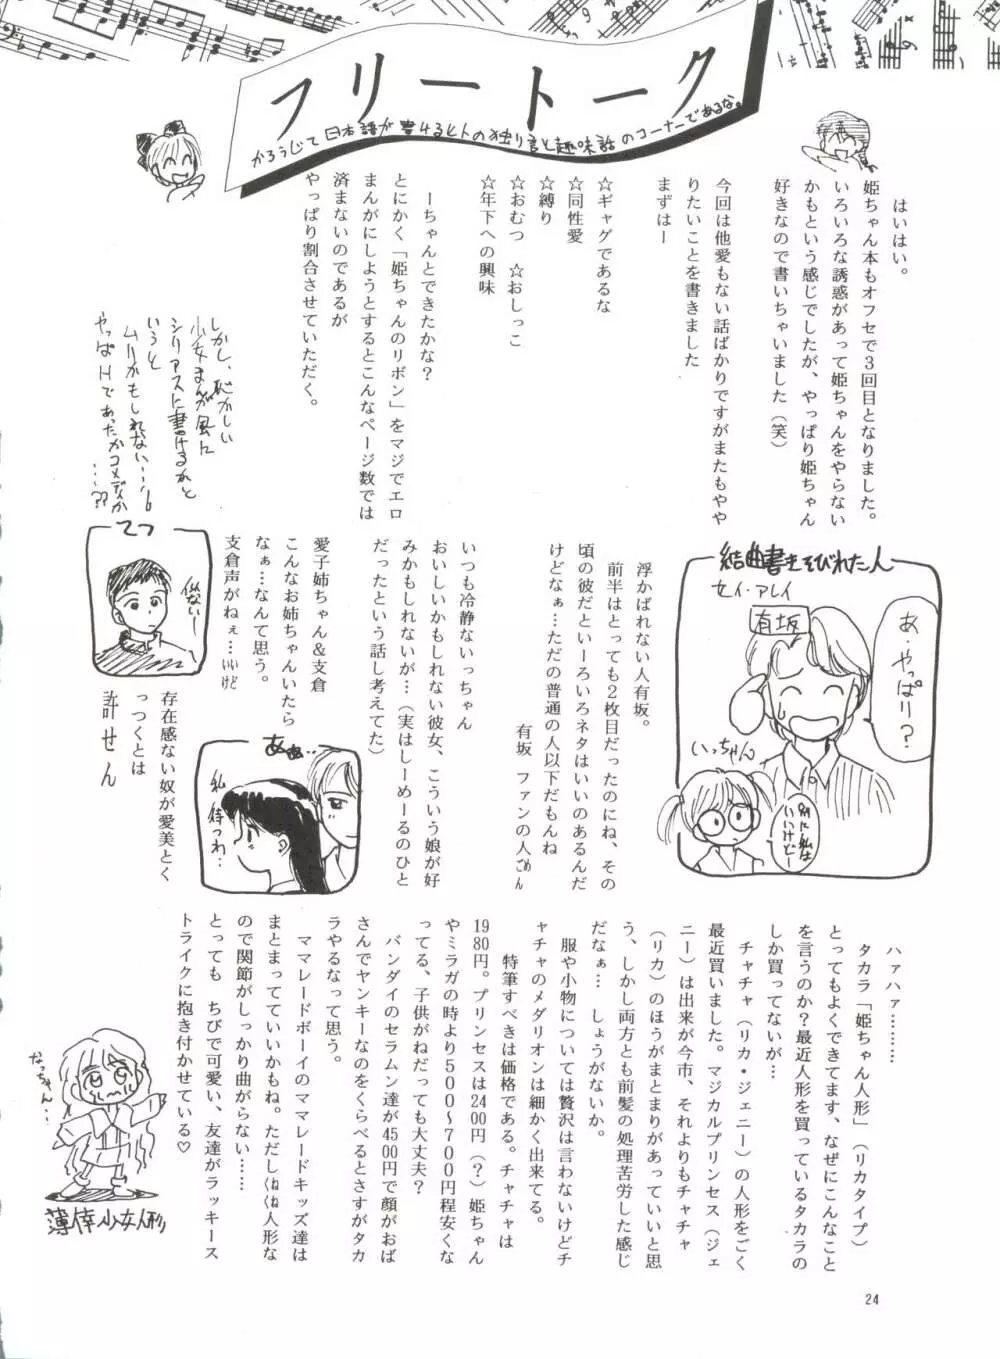 フリートーク
かろうじて日本語が書けるヒトの独り言と趣味話のコーナーであるな。
はいはい。
姫ちゃん本もオフセで3回目となりました。
いろいろな誘惑があって姫ちゃんをやらない
かもという感じでしたが、やっぱり姫ちゃん
好きなので書いちゃいました（笑）
今回は他愛もない話ばかりですがまたもやや
りたいことを書きました
まずはー
☆ギャグであるな
☆同性愛
☆縛り
☆おむつ ☆おしっこ
☆年下への興味
ーちゃんとできたかな？
とにかく「姫ちゃんのリボン」をマジでエロ
まんがにしようとするとこんなページ数では
済まないのであるが
やっぱり割合させていただく。
しかし、恥かしい
少女まんが風に
シリアスに書けるかと
いうと
ムリかもしれない…
やっぱHであったかコメディか
……??
結曲書きそびれた人
セイ・アレイ
有坂
あ・やっぱり？
いっちゃん
別に私は
いいけどー
浮かばれない人有坂。
前半はとっても2枚目だったのにね、その
頃の彼だといーろいろネタはいいのあるんだ
けどなぁ…ただの普通の人以下だもんね
有坂 ファンの人ごめん
いつも冷静ないっちゃん
おいしいかもしれない彼女、こういう娘が好
みかもしれないが…（実はしーめーるのひと
だったという話し考えてた）
愛子姉ちゃん＆支倉
こんなお姉ちゃんいたら
なぁ…なんて思う。
支倉声がねぇ…いいけど
てつ
あぁ..
私
待つわ…
存在感ない奴が愛美とく
っつくとは
許せん
ハァハァ…………
タカラ「姫ちゃん人形」（リカタイプ）
とってもよくできてます、なぜにこんなこと
を言うのか？最近人形を買っているタカラの
しか買ってないが…
チャチャ（リカ・ジェニー）の人形をごく
最近買いました。マジカルプリンセス（ジェ
ニー）は出来が今市、それよりもチャチャ
（リカ）のほうがまとまりがあっていいと思
う、しかし両方とも前髪の処理苦労した感じ
だなぁ… しょうがないか。
服や小物については贅沢は言わないけどチ
ャチャのメダリオンは細かく出来てる。
特筆すべきは価格である。チャチャは
1980円。プリンセスは2400円（？）姫ちゃん
やミラガの時より500～700円程安くな
ってる、子供がねだっても大丈夫？
バンダイのセラムン達が4500円で顔がおば
さんでヤンキーなのをくらべるとさすがタカ
ラやるなって思う。
ママレードボーイのママレードキッズ達は
まとまってていいかもね。ただしくねくね人形な
ので関節がしっかり曲がらない……
とっても ちびで可愛い、友達がラッキース
トライクに抱き付かせている♡
なっちゃん…
薄倖少女人形
24